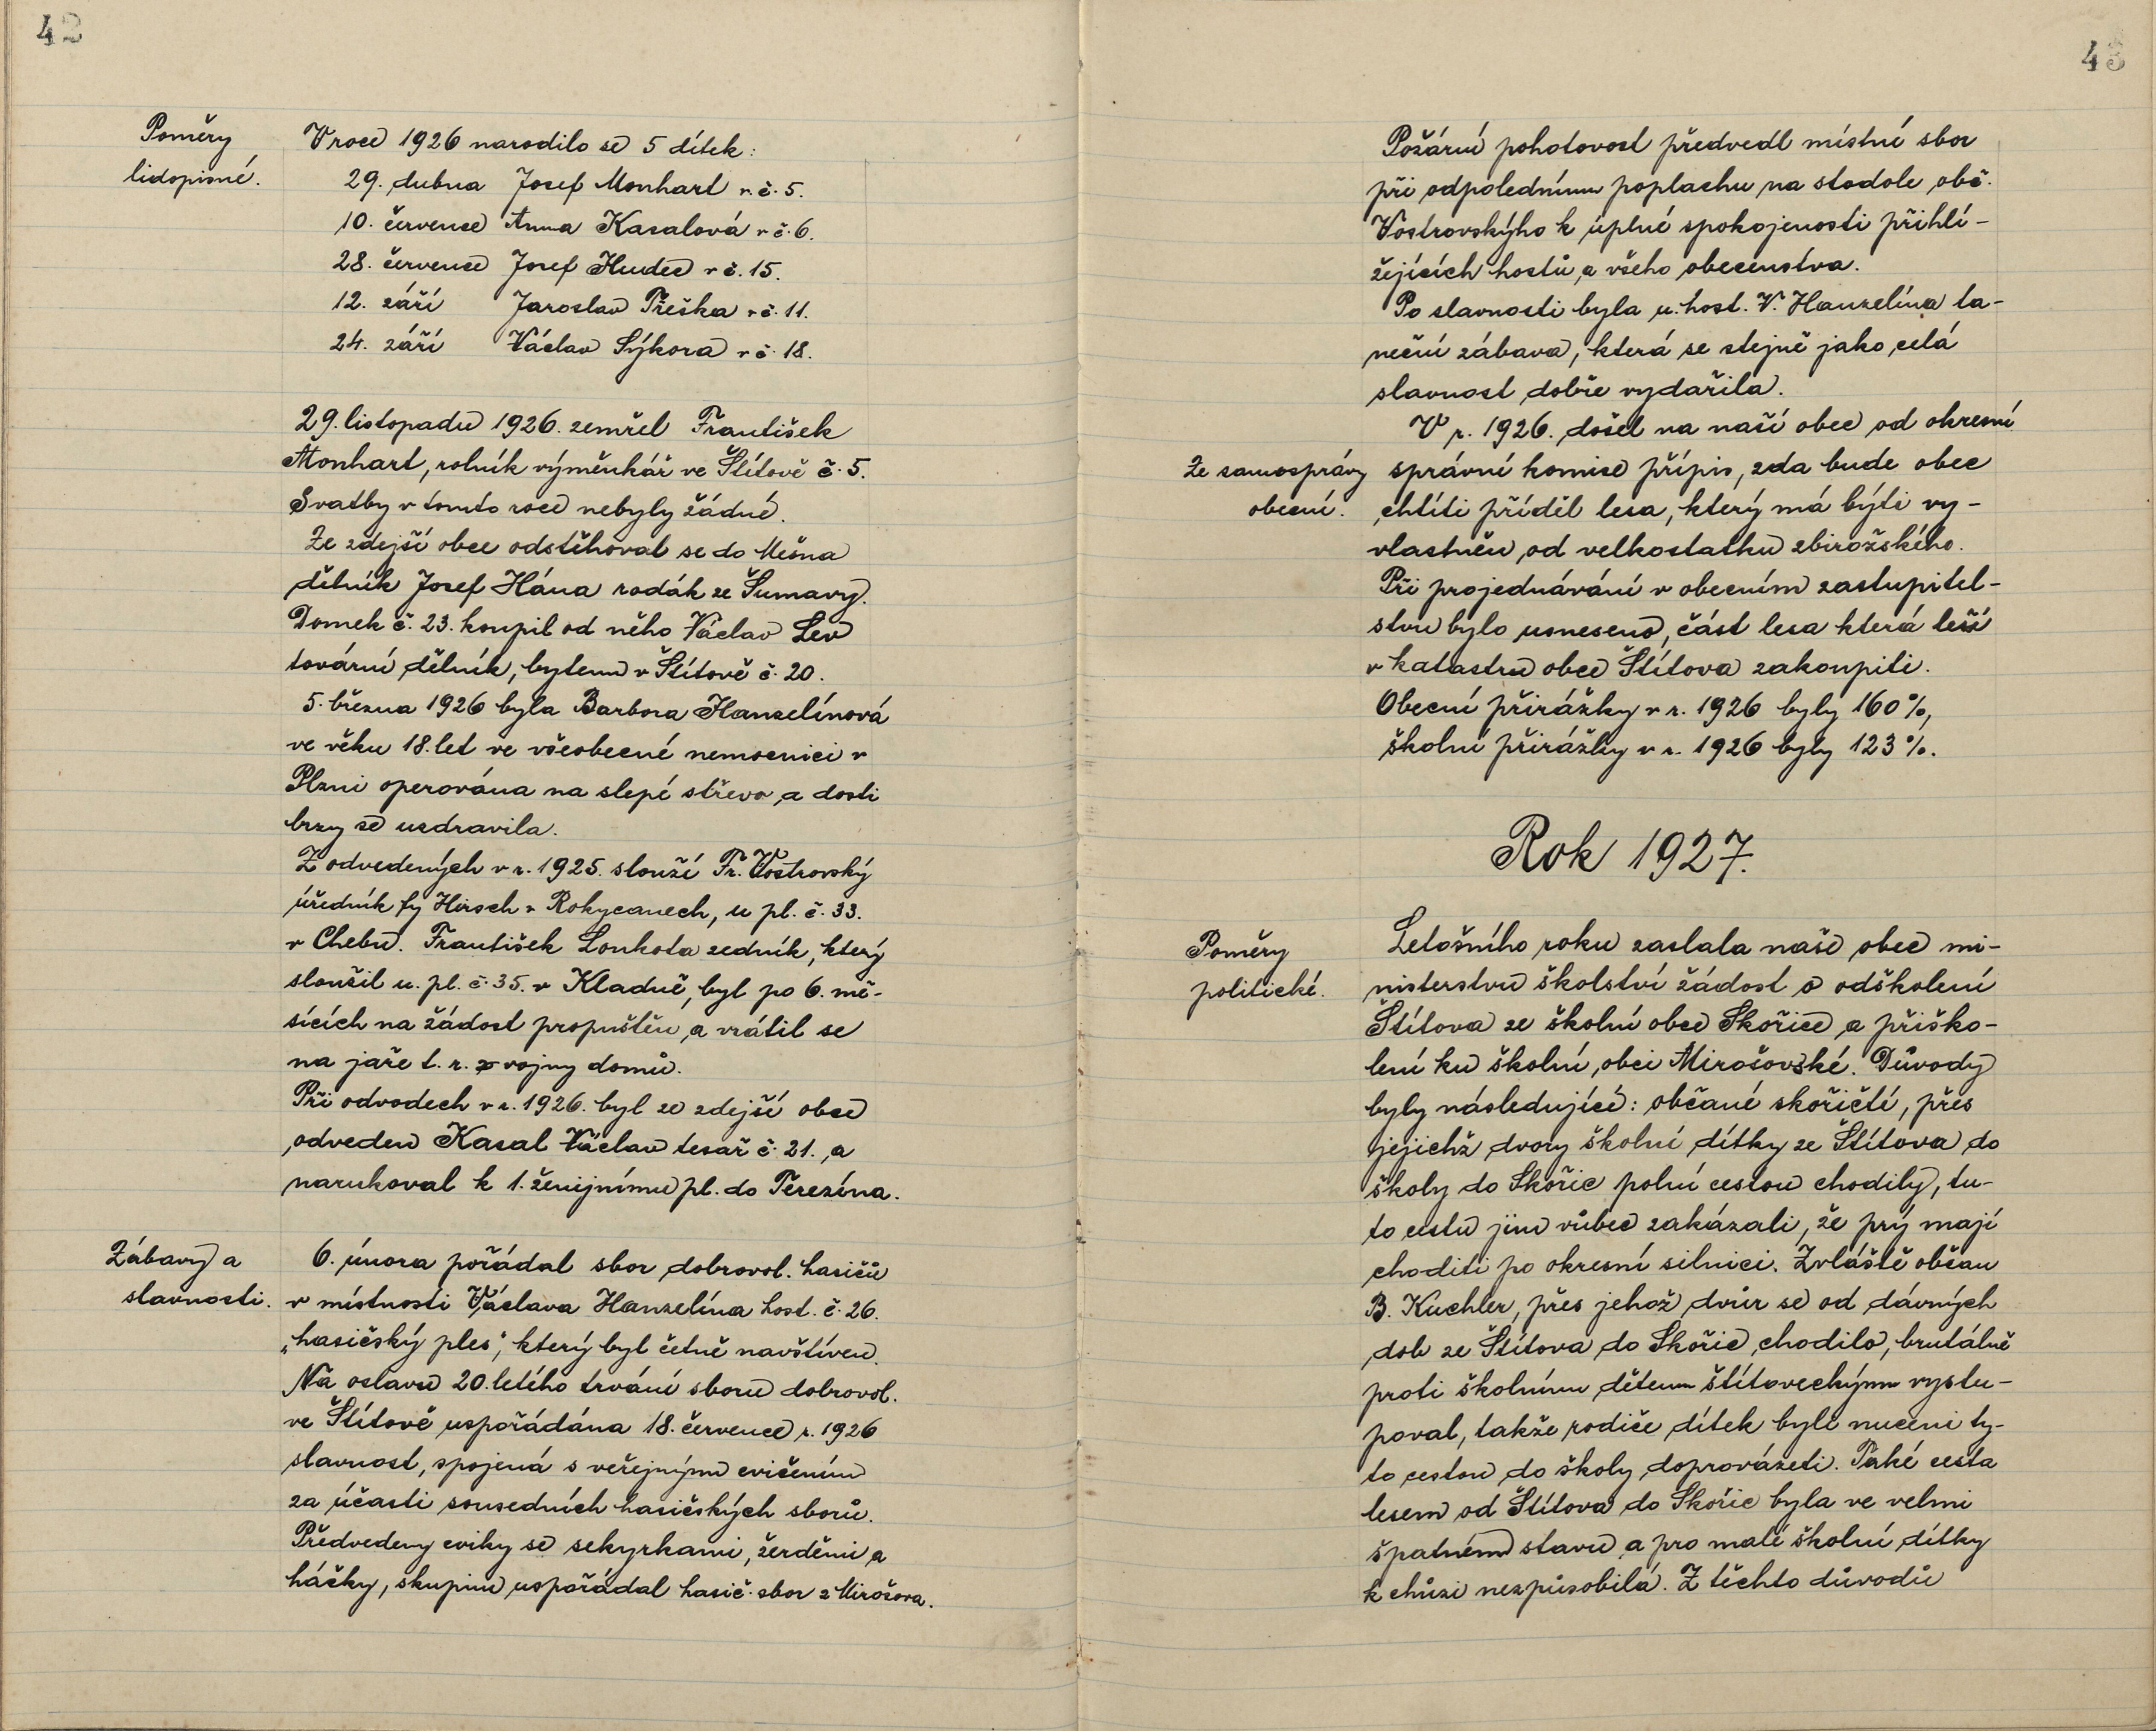 42
Poměry
lidopisné.
V roce 1926 narodilo se 5 dítek:
29. dubna Josef Monhart v č. 5.
10. července Anna Kasalová v č. 6.
28. července Josef Hudec v č. 15.
12. září Jaroslav Přeška v č. 11.
24. září Václav Sýkora v č. 18.
29. listopadu 1926. zemřel František
Monhart, rolník výměnkář ve Štítově č. 5.
Svatby v tomto roce nebyly žádné.
Ze zdejší obce odstěhoval se do Mešna
dělník Josef Hána rodák ze Šumavy.
Domek č. 23. koupil od něho Václav Lev
tovární dělník, bytem v Štítově č. 20.
5. března 1926 byla Barbora Hanzelínová
ve věku 18. let ve všeobecné nemocnici v
Plzni operována na slepé střevo a dosti
brzy se uzdravila.
Z odvedených v r. 1925. slouží Fr. Vostrovský
úředník fy Hirsch v Rokycanech, u pl. č. 33.
v Chebu. František Loukota zedník, který
sloužil u. pl. č. 35. v Kladně, byl po 6. mě-
sících na žádost propuštěn a vrátil se
na jaře t. r. z vojny domů.
Při odvodech v r. 1926. byl ze zdejší obce
odveden Kasal Václav tesař č. 21., a
narukoval k 1. ženijnímu pl. do Terezína.
Zábavy a
slavnosti.
6. února pořádal sbor dobrovol. hasičů
v místnosti Václava Hanzelína host. č. 26.
„hasičský ples", který byl četně navštíven.
Na oslavu 20. letého trvání sboru dobrovol.
ve Štítově uspořádána 18. července r. 1926
slavnost, spojená s veřejným cvičením
za účasti sousedních hasičských sborů.
Předvedeny cviky se sekyrkami, žerděmi a
háčky, skupinu uspořádal hasič. sbor z Mirošova.
43
Požární pohotovost předvedl místní sbor
při odpoledním poplachu na stodole obč.
Vostrovskýho k úplné spokojenosti přihlí-
žejících hostů, a všeho obecenstva.
Po slavnosti byla u. host. V. Hanzelína ta-
neční zábava, která se stejně jako celá
slavnost dobře vydařila.
V r. 1926. došel na naší obec od okresní
Ze samosprávy
obecní.
správní komise přípis, zda bude obec
chtíti příděl lesa, který má býti vy-
vlastněn od velkostatku zbirožského.
Při projednávání v obecním zastupitel-
stvu bylo usneseno, část lesa která leží
v katastru obce Štítova zakoupiti.
Obecní přirážky v r. 1926 byly 160%,
školní přirážky v r. 1926 byly 123%.
Rok 1927.
Poměry
politické.
Letošního roku zaslala naše obec mi-
nisterstvu školství žádost o odškolení
Štítova ze školní obce Skořice a přiško-
lení ku školní obci Mirošovské. Důvody
byly následující: občané skořičtí, přes
jejichž dvory školní dítky ze Štítova do
školy do Skořic polní cestou chodily, tu-
to cestu jim vůbec zakázali, že prý mají
choditi po okresní silnici. Zvláště občan
B. Kuchler, přes jehož dvůr se od dávných
dob ze Štítova do Skořic chodilo, brutálně
proti školním dětem štítoveckým vystu-
poval, takže rodiče dítek byli nuceni ty-
to cestou do školy doprovázeti. Také cesta
lesem od Štítova do Skořic byla ve velmi
špatném stavu a pro malé školní dítky
k chůzi nezpůsobilá. Z těchto důvodů